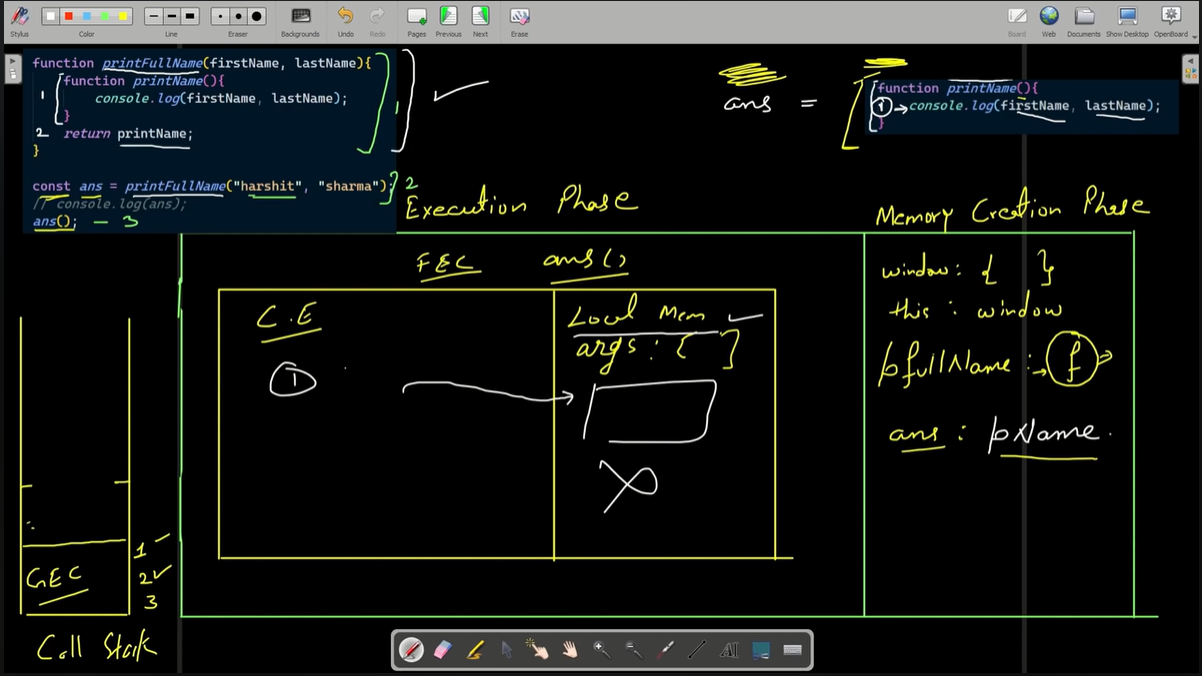 Stylus Color Line Eraser Backgrounds Undo Redo Pages Previous Next Erase Board Web Documents Show Desktop OpenBoard
function printFullName(firstName, lastName){
1 function printName(){
console.log(firstName, lastName);
}
2 return printName;
}
1
const ans = printFullName("harshit", "sharma"); 2
// console.log(ans);
ans(); – 3
ans =
function printName(){
1 → console.log(firstName, lastName);
}
Execution Phase
Memory Creation Phase
FEC ans()
C.E
1
Local Mem
args: { }
window: { }
this: window
pfullName: → f
ans: pName.
1
GEC 2
3
Call Stack